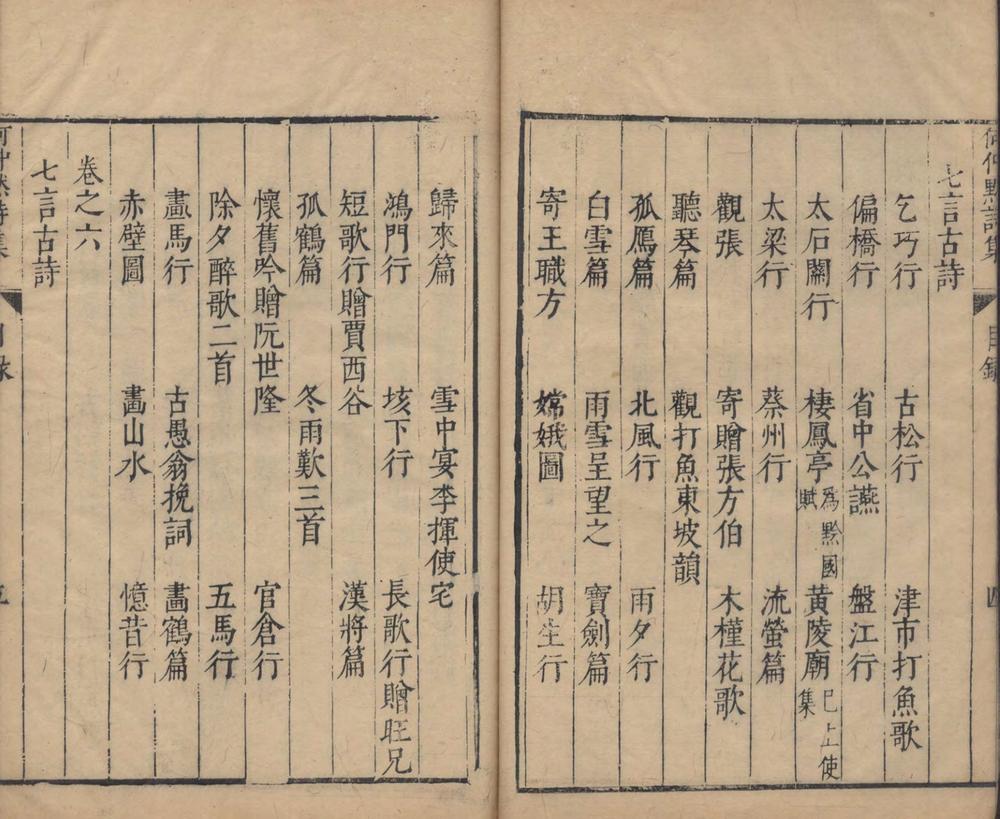 何仲默詩集 目錄 四
七言古詩
乞巧行 古松行 津市打魚歌
偏橋行 省中公讌 盤江行
太石關行 棲鳳亭爲黔國賦 黃陵廟巳上使集
太梁行 蔡州行 流螢篇
觀張 寄贈張方伯 木槿花歌
聽琴篇 觀打魚東坡韻
孤鴈篇 北風行 雨夕行
白雪篇 雨雪呈望之 寶劍篇
寄王職方 嫦娥圖 胡生行
歸來篇 雪中宴李揮使宅
鴻門行 垓下行 長歌行贈旺兄
短歌行贈賈西谷 漢將篇
孤鶴篇 冬雨歎三首
懷舊吟贈阮世隆 官倉行
除夕醉歌二首 五馬行
畵馬行 古愚翁挽詞 畵鶴篇
赤壁圖 畵山水 憶昔行
卷之六
七言古詩
何仲默詩集 目錄 五